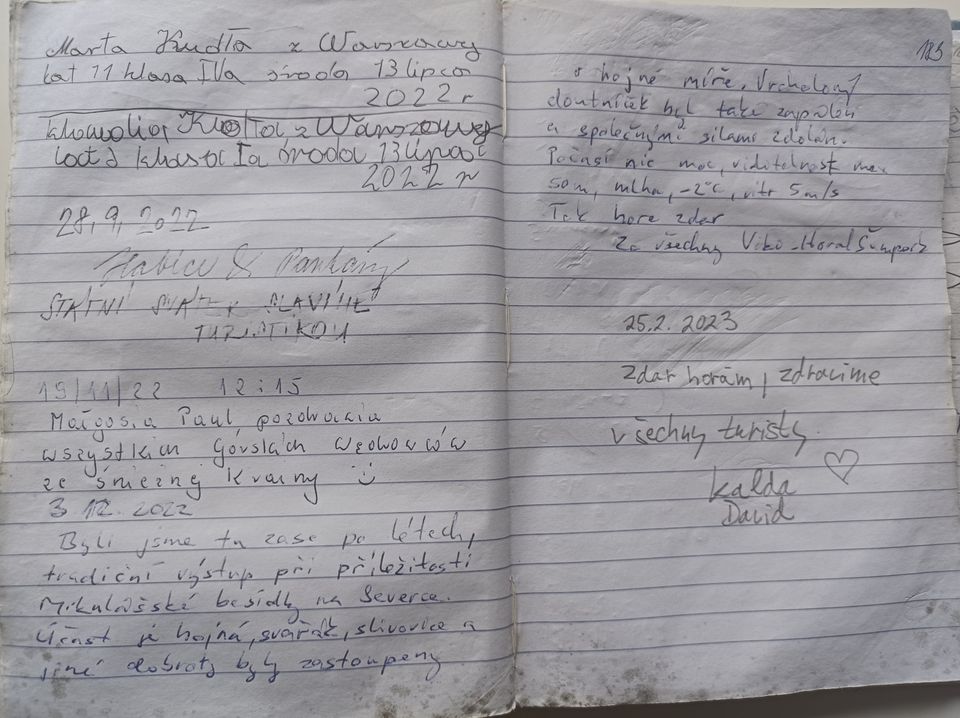 Marta Kudła z Warszawy
lat 11 klasa IVa środa 13 lipca
2022 r
z Warszawy
klasa Ia środa 13 lipca
2022 r
28.9.2022
&
STÁTNÍ SVÁTEK SLAVÍME
TURISTIKOU
19/11/22 12:15
Małgosia Paul, pozdrawia
wszystkich górskich wędrowców
ze śnieżnej krainy
3.12.2022
Byli jsme tu zase po létech,
tradiční výstup při příležitosti
Mikulášské besídky na Severce.
Účast je hojná, svařák, slivovice a
jiné dobroty byly zastoupeny
185
v hojné míře. Vrcholový
doutníček byl také zapálen
a společnými silami zdolán.
Počasí nic moc, viditelnost max
50m, mlha, -2°C, vítr 5m/s
Tak hore zdar
Za všechny
25.2.2023
Zdar horám, zdravíme
všechny turisty.
Kalda
David